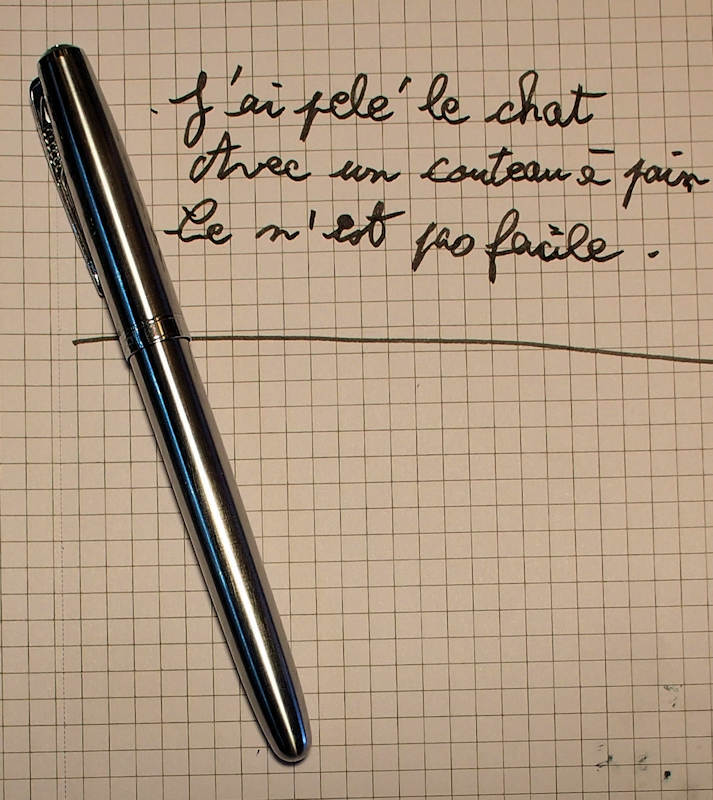 J'ai pelé le chat
Avec un couteau à pain
Ce n'est pas facile.